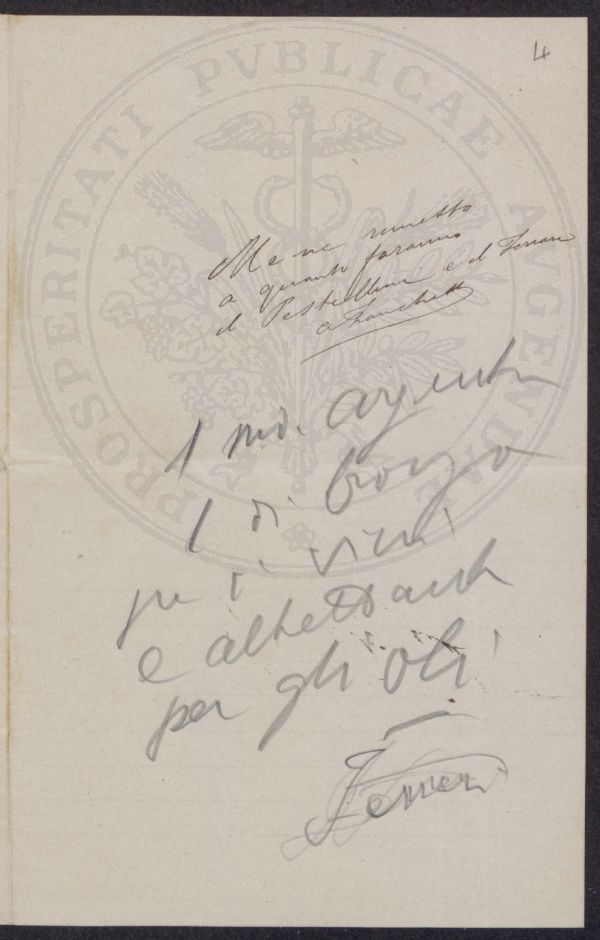 4
PROSPERITATI PVBLICAE AVGENDAE
Me ne rimetto
a quanto faranno
il Pestellini e il Ferrari
1 md. argento
1 di bronzo
per i vini
e altrettanto
per gli olì
Ferrari